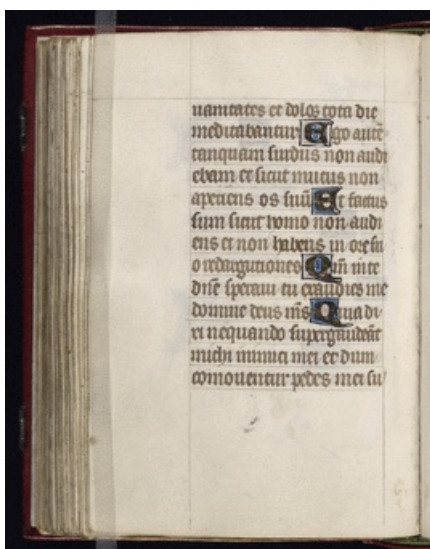 uanitates et dolos tota die
meditabantur Ego autē
tanquam surdus non audi
ebam et sicut mutus non
aperiens os suū Et factus
sum sicut homo non audi
ens et non habens in ore su
o redargutiones Qm̄ in te
dn̄e speraui tu exaudies me
domine deus ms̄ Quia di
xi nequando supergaudeāt
michi inimici mei et dum
comouentur pedes mei su